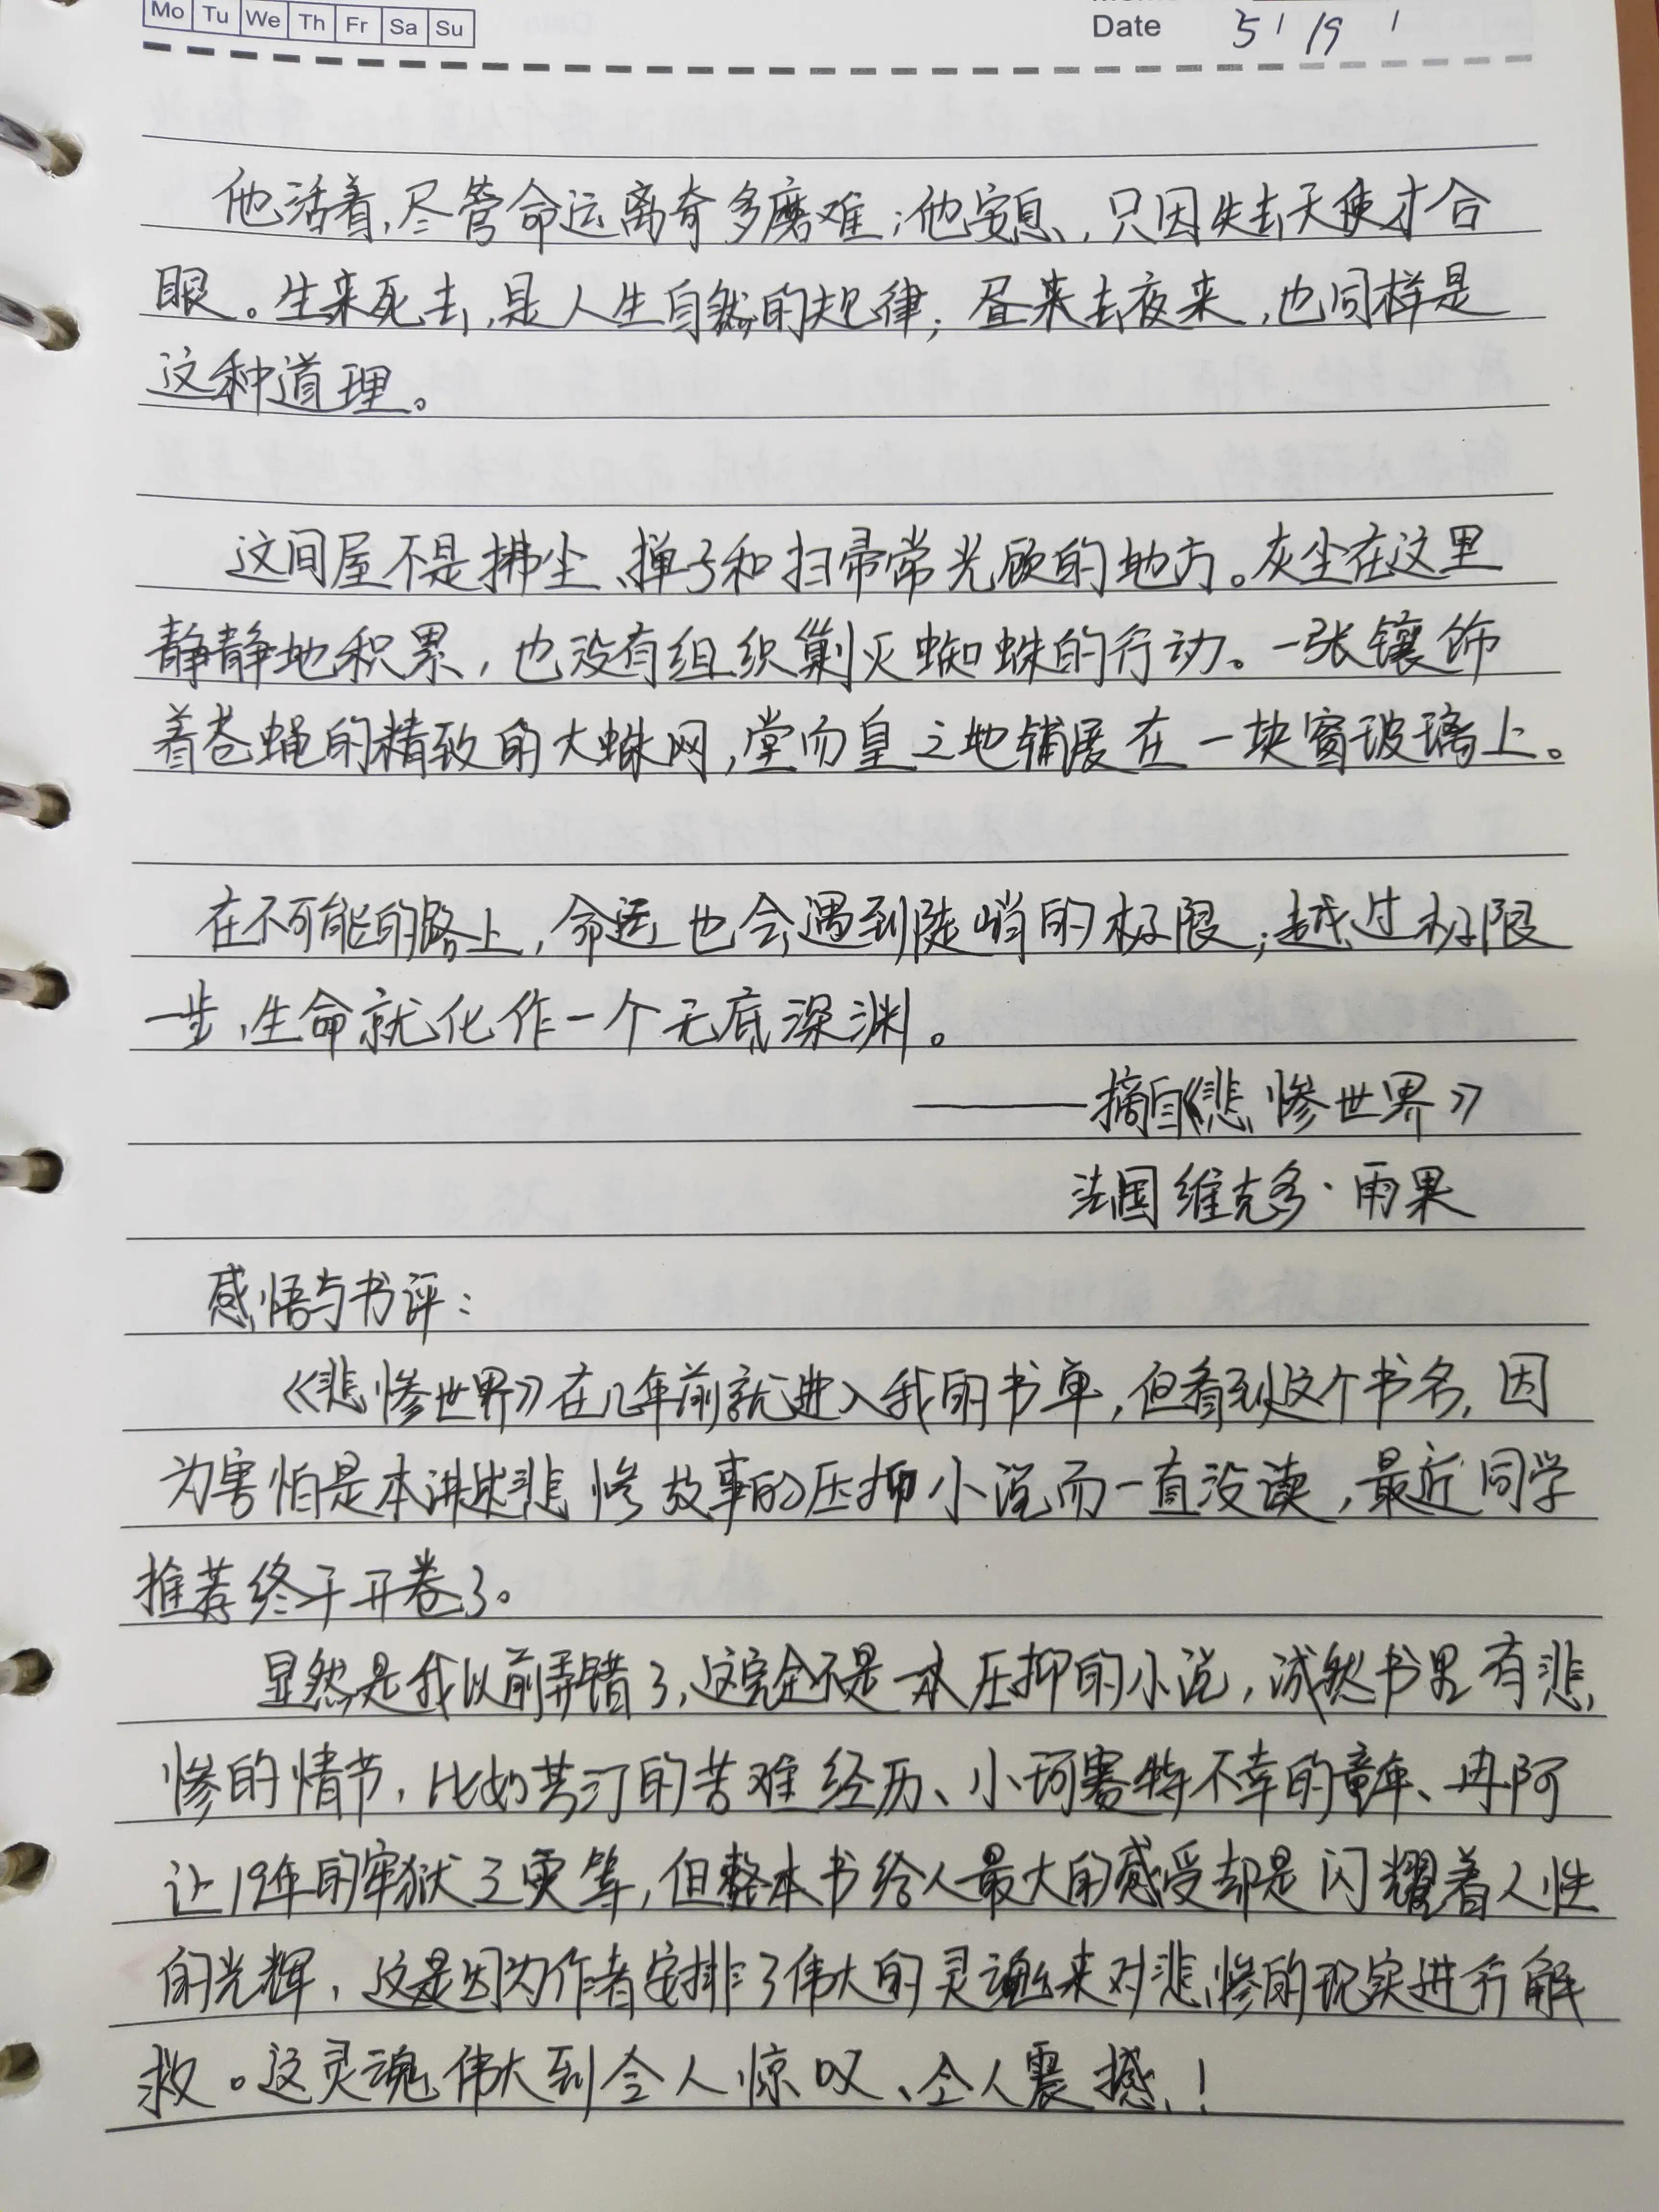 Mo Tu We Th Fr Sa Su
Date 5 / 19 /
他活着,尽管命运离奇多磨难;他安息,只因失去天使才合
眼。生来死去,是人生自然的规律;昼来去夜来,也同样是
这种道理。
这间屋不是拂尘、掸子和扫帚常光顾的地方。灰尘在这里
静静地积累,也没有组织剿灭蜘蛛的行动。一张镶饰
着苍蝇的精致的大蛛网,堂而皇之地铺展在一块窗玻璃上。
在不可能的路上,命运也会遇到陡峭的极限;越过极限
一步,生命就化作一个无底深渊。
——摘自《悲惨世界》
法国 维克多·雨果
感悟与书评:
《悲惨世界》在几年前就进入我的书单,但看到这个书名,因
为害怕是本讲述悲惨故事的压抑小说而一直没读,最近同学
推荐终于开卷了。
显然是我以前弄错了,这完全不是一本压抑的小说,诚然书里有悲
惨的情节,比如芳汀的苦难经历、小珂赛特不幸的童年、冉阿
让19年的牢狱之灾等,但整本书给人最大的感受却是闪耀着人性
的光辉,这是因为作者安排了伟大的灵魂来对悲惨的现实进行解
救。这灵魂伟大到令人惊叹、令人震撼!